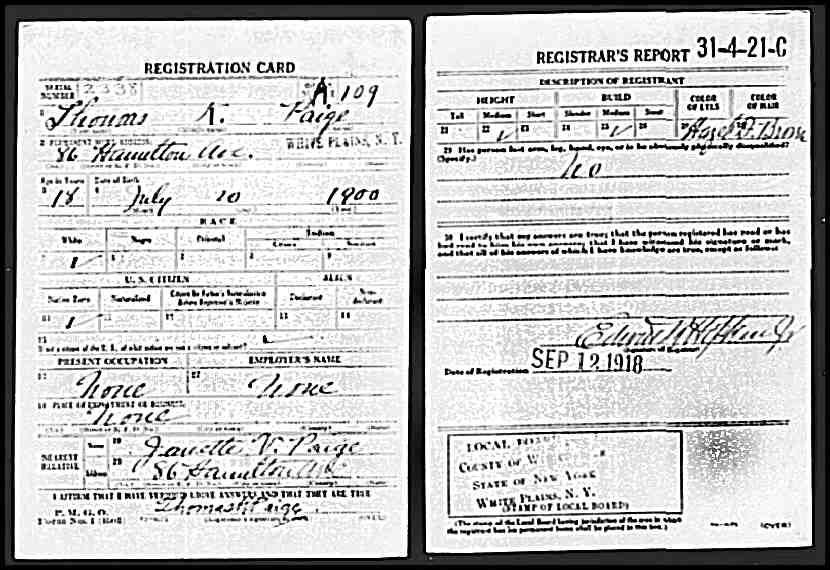 REGISTRATION CARD
SERIAL NUMBER 2338
A 109
1 Thomas K. Paige
2 PERMANENT HOME ADDRESS:
86 Hamilton Ave. WHITE PLAINS, N. Y.
Age in Years Date of Birth
18 July 10 1900
RACE
White Negro Oriental Indian
Citizen
U. S. CITIZEN ALIEN
Native Born Naturalized Declarant Non-declarant
10 11 12 13 14
15
PRESENT OCCUPATION EMPLOYER'S NAME
None None
18 PLACE OF EMPLOYMENT OR BUSINESS:
None
NEAREST RELATIVE
Name 19 Janette V. Paige
Address 20 86 Hamilton Ave
I AFFIRM THAT I HAVE VERIFIED ABOVE ANSWERS AND THAT THEY ARE TRUE
P. M. G. O.
Form No. 1 (Red) Thomas K Paige (OVER)
REGISTRAR'S REPORT 31-4-21-C
DESCRIPTION OF REGISTRANT
HEIGHT BUILD COLOR OF EYES COLOR OF HAIR
Tall Medium Short Slender Medium Stout
21 22 23 24 25 26 27 Hazel
29 Has person lost arm, leg, hand, eye, or is he obviously physically disqualified?
(Specify.)
No
30 I certify that my answers are true; that the person registered has read or has
had read to him his own answers; that I have witnessed his signature or mark,
and that all of his answers of which I have knowledge are true, except as follows:
Date of Registration SEP 12 1918
LOCAL BOARD
COUNTY OF
STATE OF NEW YORK
WHITE PLAINS, N. Y.
(STAMP OF LOCAL BOARD)
(The stamp of the Local Board having jurisdiction of the area in which
the registrant has his permanent home shall be placed in this box.)
(OVER)